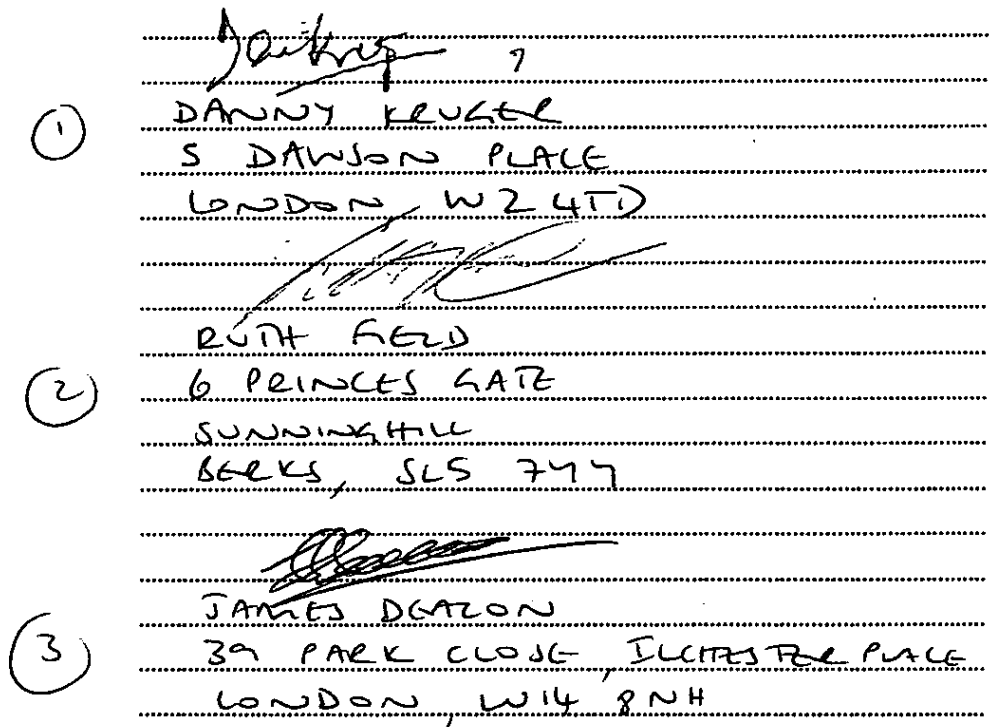 ①
DANNY KRUGER
5 DAWSON PLACE
LONDON, W2 4TD
②
RUTH FIELD
6 PRINCES GATE
SUNNINGHILL
BERKS, SL5 7YY
③
JAMES DEACON
39 PARK CLOSE, ILCHESTER PLACE
LONDON, W14 8NH